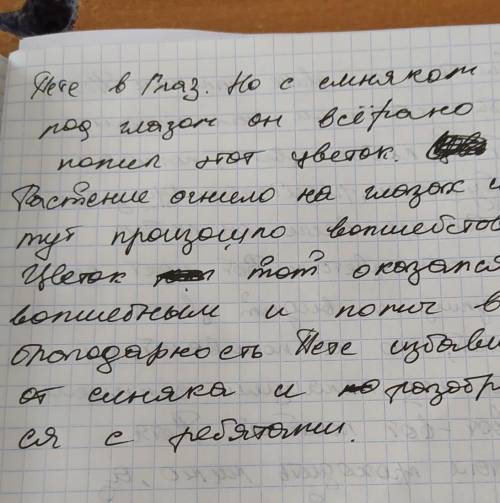 Пете в глаз. Но с синяком
под глазом он всёрано
полил этот цветок.
Растение ожило на глазах и
тут произошло волшебство
Цветок тот оказался
волшебным и полил в
благодарность Пете избави
от синяка и разобр
ся с ребятами.